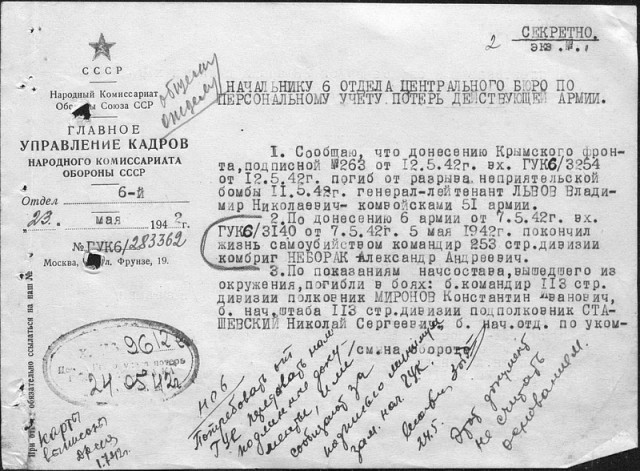 2
СЕКРЕТНО.
экз.№.1
СССР
Народный Комиссариат
Обороны Союза ССР
ГЛАВНОЕ
УПРАВЛЕНИЕ КАДРОВ
НАРОДНОГО КОМИССАРИАТА
ОБОРОНЫ СССР
Отдел 6-й
„23„ мая 1942г.
№ГУК6/283362
Москва, ул. Фрунзе, 19.
общему
отделу
НАЧАЛЬНИКУ 6 ОТДЕЛА ЦЕНТРАЛЬНОГО БЮРО ПО
ПЕРСОНАЛЬНОМУ УЧЕТУ ПОТЕРЬ ДЕЙСТВУЮЩЕЙ АРМИИ.
1. Сообщаю, что донесению Крымского фрон-
та, подписной №263 от 12.5.42г. вх. ГУК6/3254
от 12.5.42г. погиб от разрыва неприятельской
бомбы 11.5.42г. генерал-лейтенант ЛЬВОВ Влади-
мир Николаевич- комвойсками 51 армии.
2. По донесению 6 армии от 7.5.42г. вх.
ГУК6/3140 от 7.5.42г. 5 мая 1942г. покончил
жизнь самоубийством командир 253 стр.дивизии
комбриг НЕБОРАК Александр Андреевич.
3.По показаниям начсостава, вышедшего из
окружения, погибли в боях: б.командир 113 стр.
дивизии полковник МИРОНОВ Константин Иванович,
б. нач. штаба 113 стр.дивизии подполковник СТА-
ШЕВСКИЙ Николай Сергеевич, б. нач.отд. по уком-
см.на обороте
При ответе обязательно ссылаться на наш №
9612с
24.05.42г.
карты
выписаны
НОБ
Потребовать от
ГУК передовать нам
подлинные доку-
менты, или
сообщать за
подписью
зам. нач. ГУК.
24.5.
Этот документ
не считать
основанием.